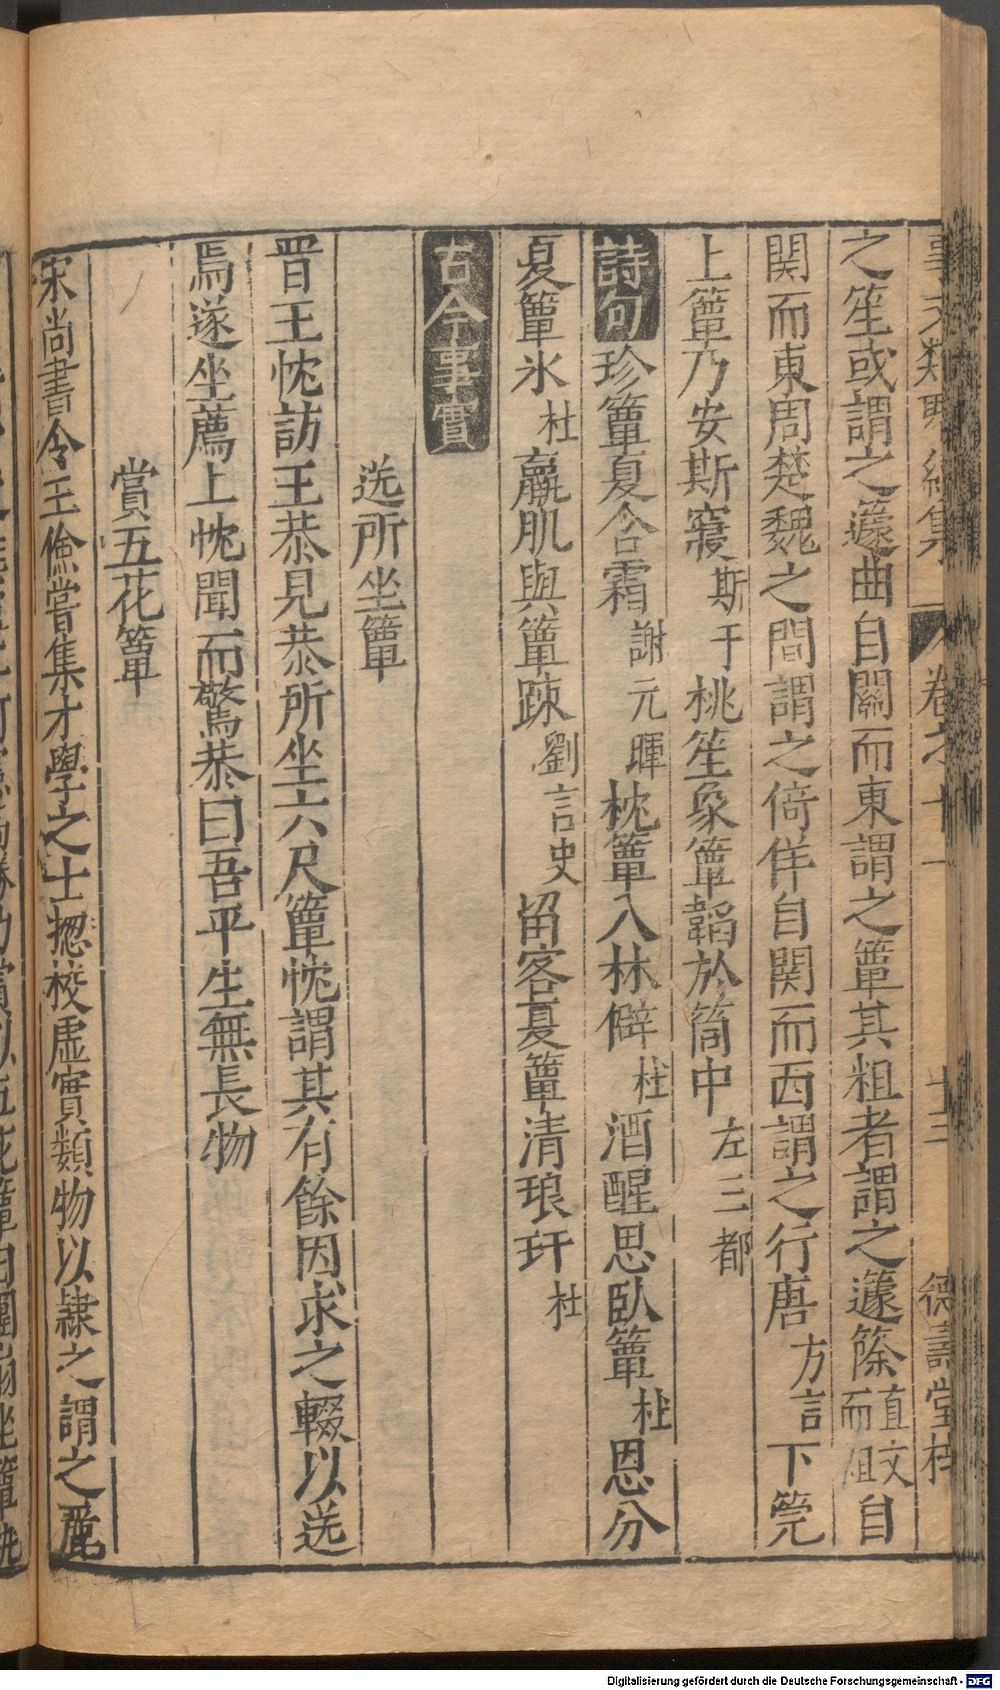 事文類聚續集 卷之十一 十三 德壽堂梓
之笙或謂之籧曲自關而東謂之簟其粗者謂之籧篨直文而粗自
関而東周楚魏之間謂之倚佯自関而西謂之行唐方言下筦
上簟乃安斯寢斯干桃笙象簟韜於筒中左三都
詩句珍簟夏含霜謝元暉枕簟入林僻杜酒醒思臥簟杜恩分
夏簟氷杜羸肌與簟疎劉言史留客夏簟清琅玕杜
古今事實
送所坐簟
晉王忱訪王恭見恭所坐六尺簟忱謂其有餘因求之輟以送
焉遂坐薦上忱聞而驚恭曰吾平生無長物
賞五花簟
宋尚書令王儉嘗集才學之士揔校虛實類物以隸之謂之麗
Digitalisierung gefördert durch die Deutsche Forschungsgemeinschaft - DFG